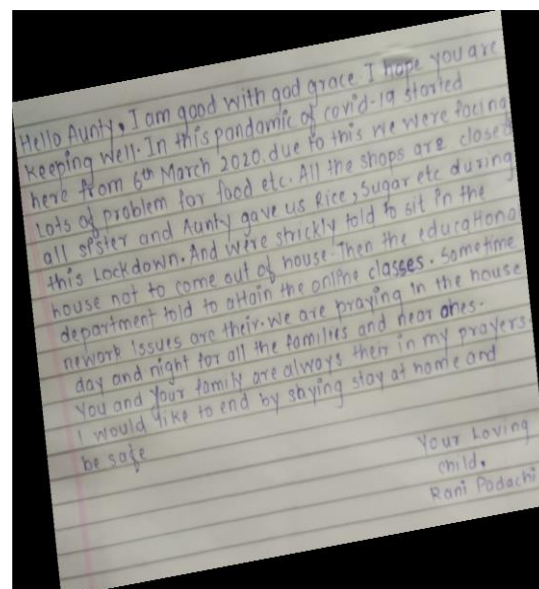 Hello Aunty, I am good with god grace. I hope you are
keeping well. In this pandamic of covid-19 started
here from 6th March 2020. due to this we were facing
Lots of problem for food etc. All the shops are closed
all sister and Aunty gave us Rice, Sugar etc during
this Lockdown. And were strickly told to sit in the
house not to come out of house. Then the educationa
department told to attain the online classes. Sometime
nework Issues are their. We are praying in the house
day and night for all the families and near ones.
You and your family are always their in my prayers.
I would like to end by saying stay at home and
be safe
Your Loving
child,
Rani Padachi